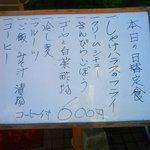 本日の日替定食
一しゃけハラスのフライ
クリームシチュー
きんぴらごぼう
ゴーヤと白菜酢物
冷し麦
フルーツ
ご飯 みそ汁 漬物
コーヒー
コーヒー付 600円